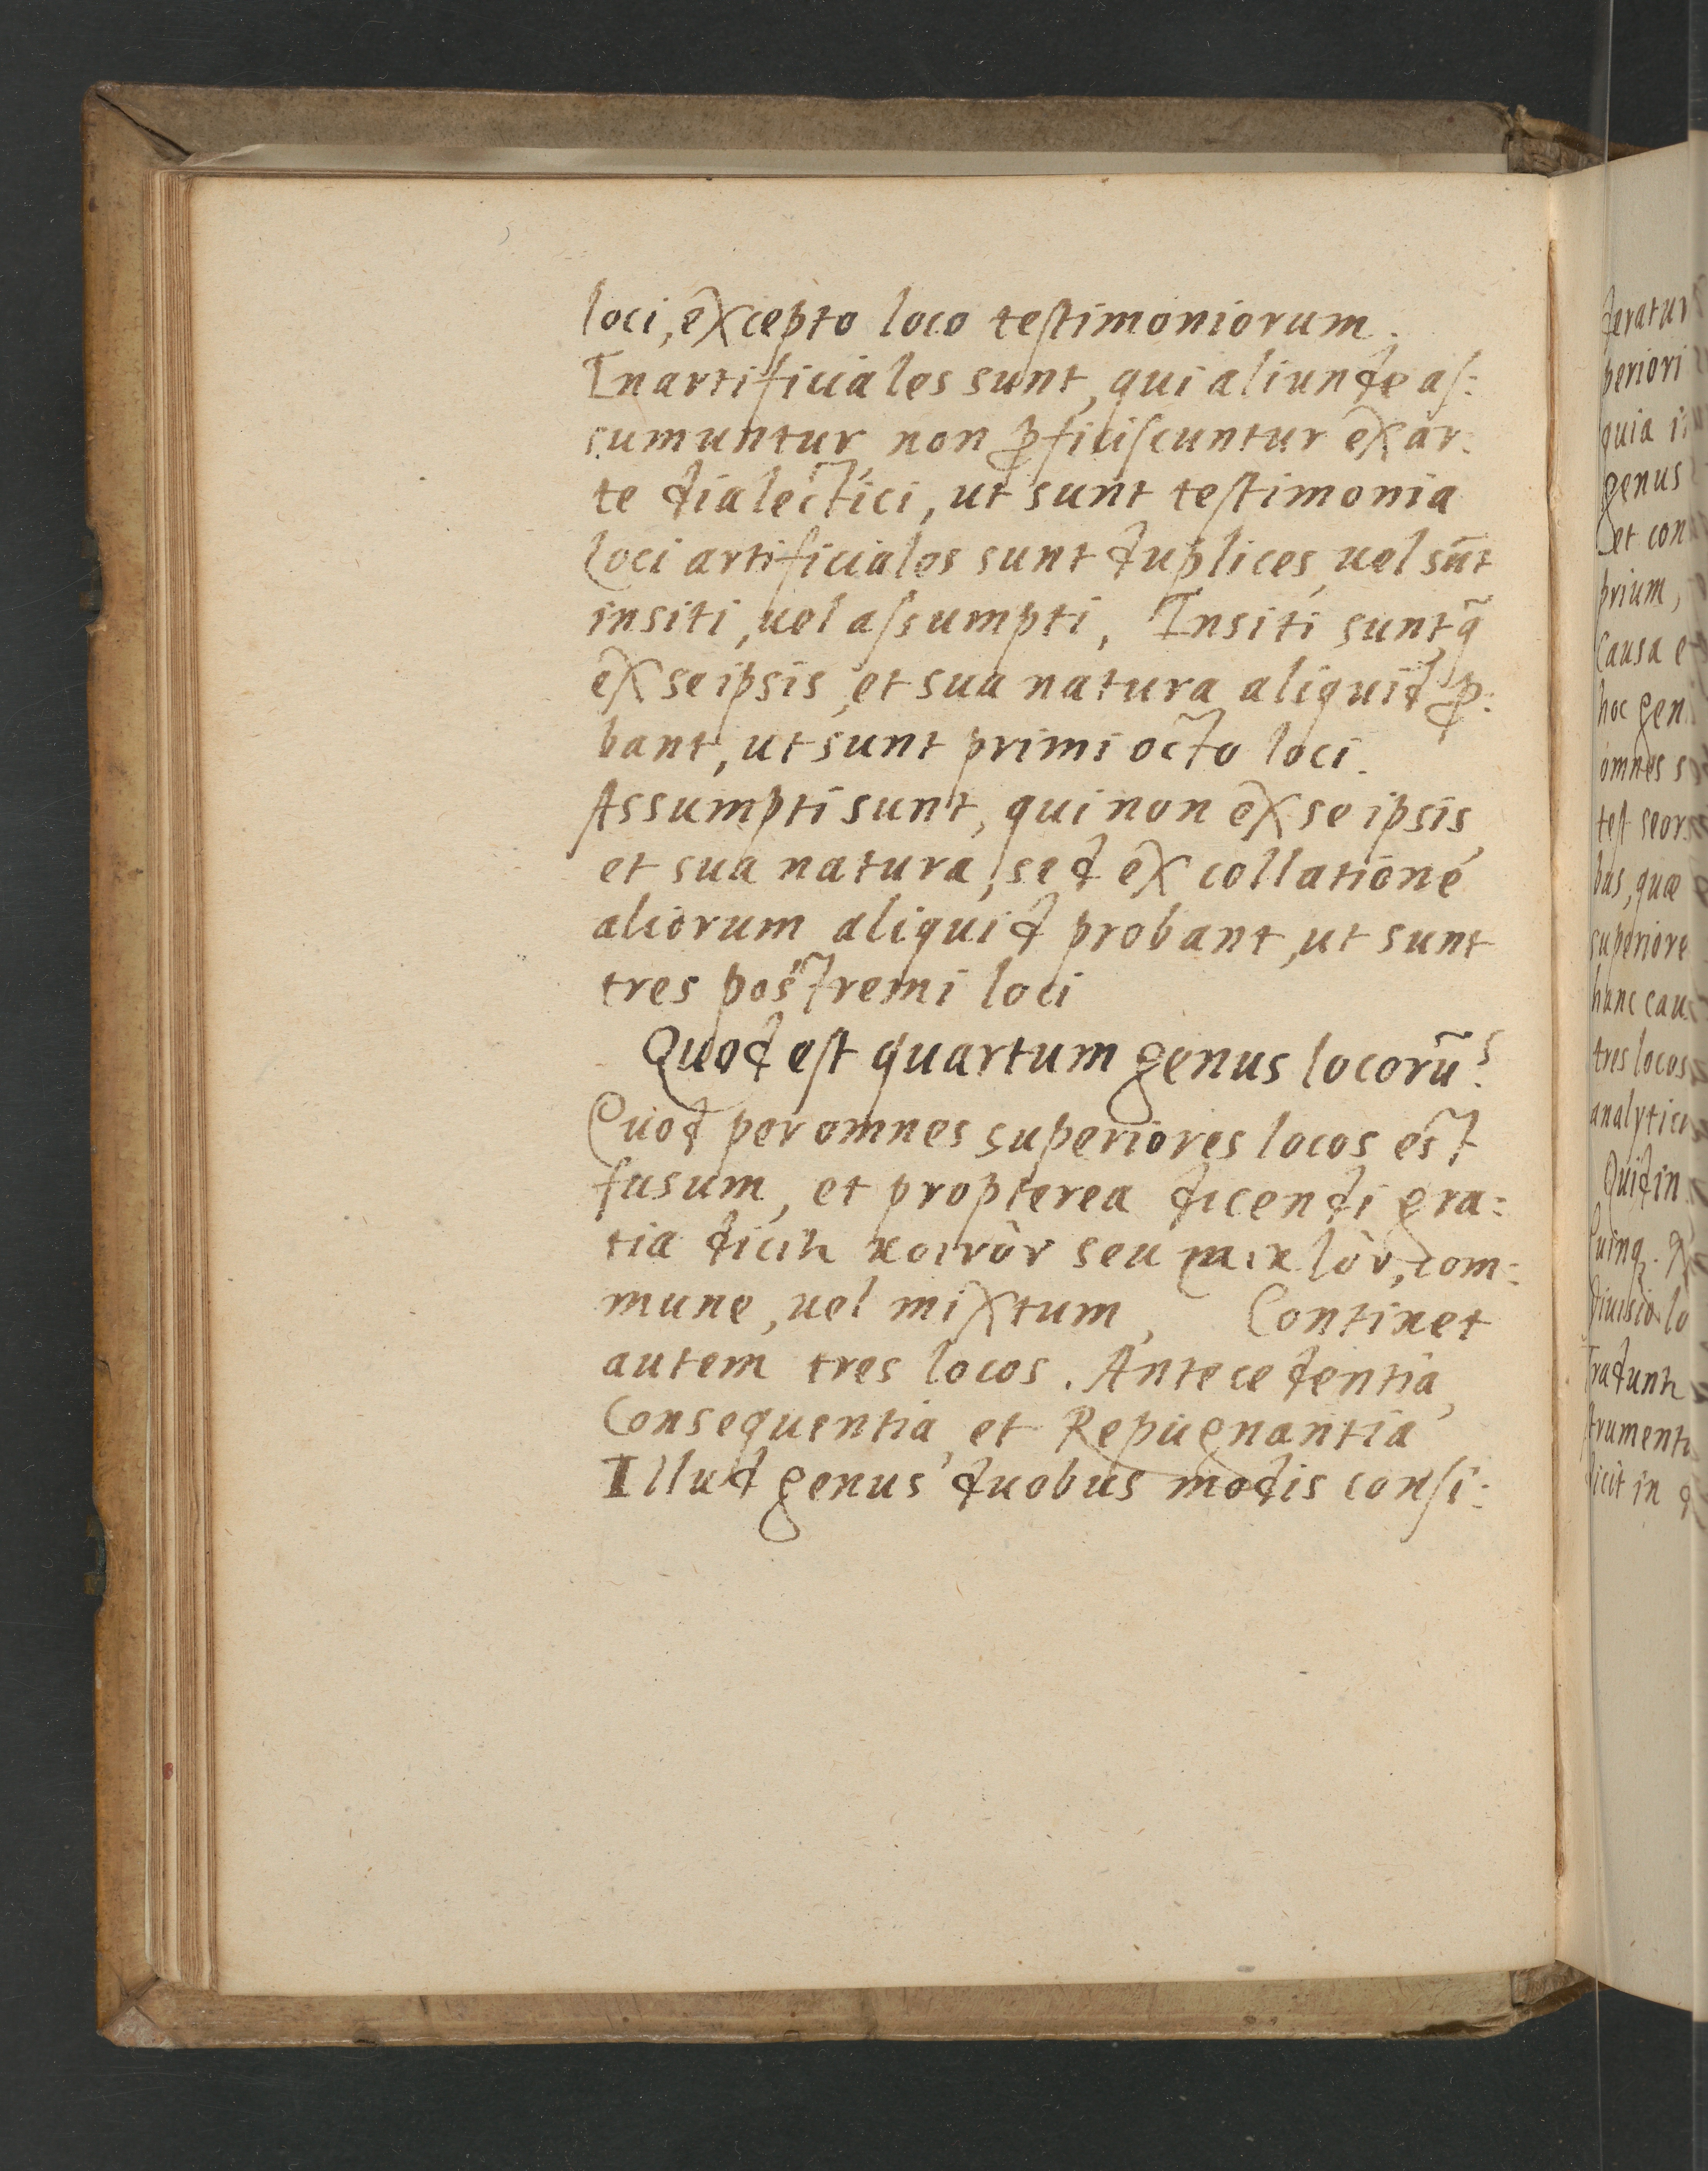 loci, excepto loco teſtimoniorum.
Inartificiales sunt, qui aliunde aſ:
sumuntur non ꝓficiſcuntur ex ar:
te dialectici, ut sunt teſtimonia
Loci artificiales sunt duplices, uel sūt
insiti, uel aſsumpti, Insiti sunt, q̃
ex se ipsis, et sua natura aliquid ꝓ:
bant, ut sunt primi octo loci.
Assumpti sunt, qui non ex se ipsis,
et sua natura, sed ex collatione
aliorum aliquid probant, ut sunt
tres postremi loci
Quod eſt quartum genus locorũ?
Quod per omnes superiores locos est
fusum, et propterea dicendi gra:
tia dicit κοινὸν seu μικτὸν, com:
mune, uel mixtum, Continet
autem tres locos. Antecedentia,
Consequentia, et Repugnantia
Illud genus duobus modis conſi:
deratur
periori
quia i
genus
et con
prium,
causa e
hoc gen
omnes s
teſt seor
bus, quæ
superiore
hanc cau
tres locos
analytic
Quid in
diuisio lo
strument
dicit in